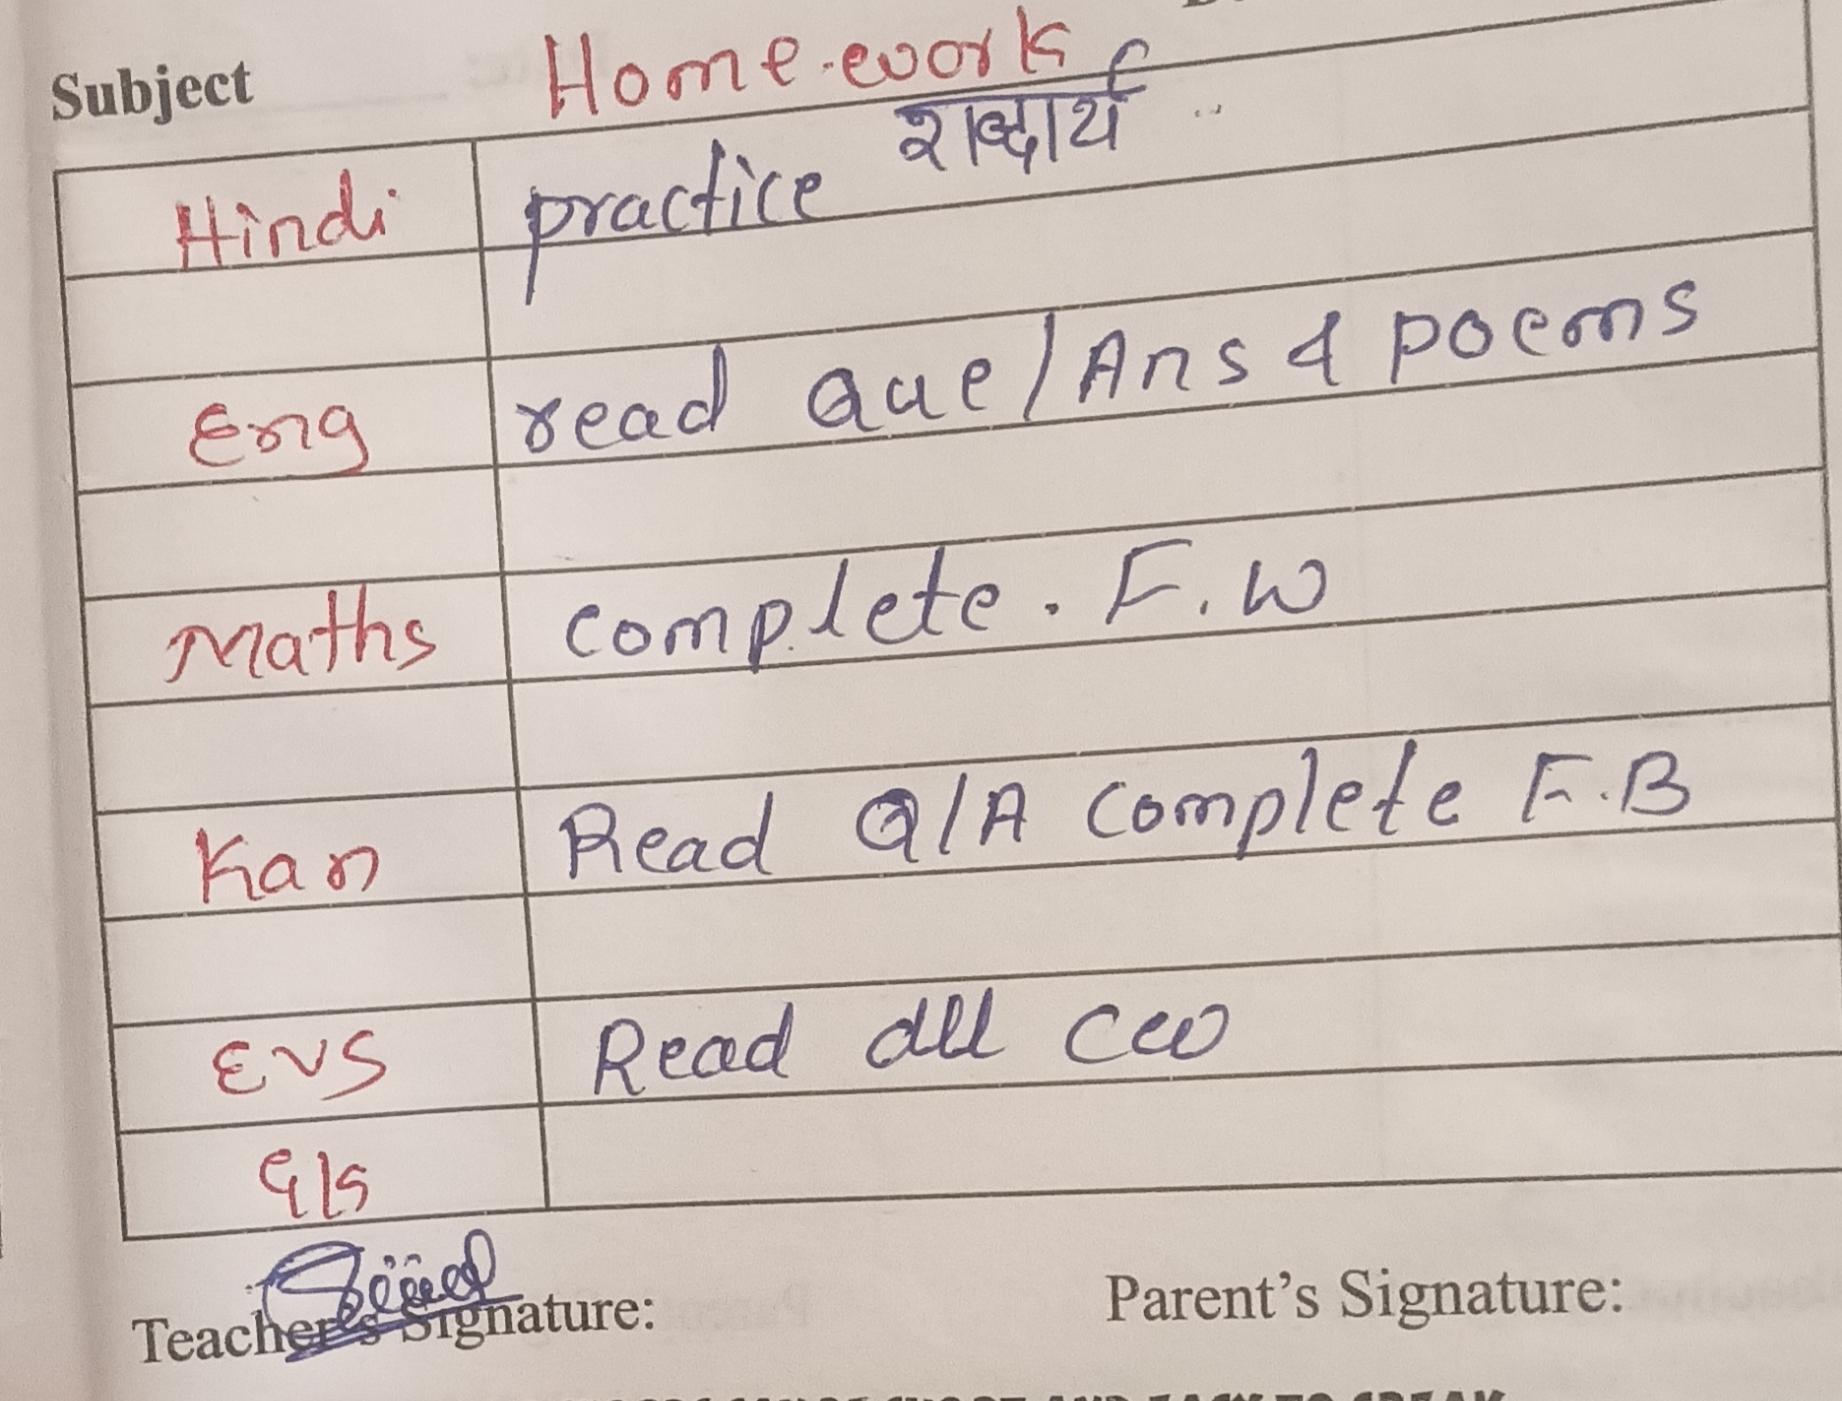 Subject Home.work
Hindi practice शब्दार्थ
Eng read Que/Ans & poems
Maths complete. F.W
Kan Read Q/A complete F.B
EVS Read all cw
G/s
Teacher's Signature: Parent's Signature: